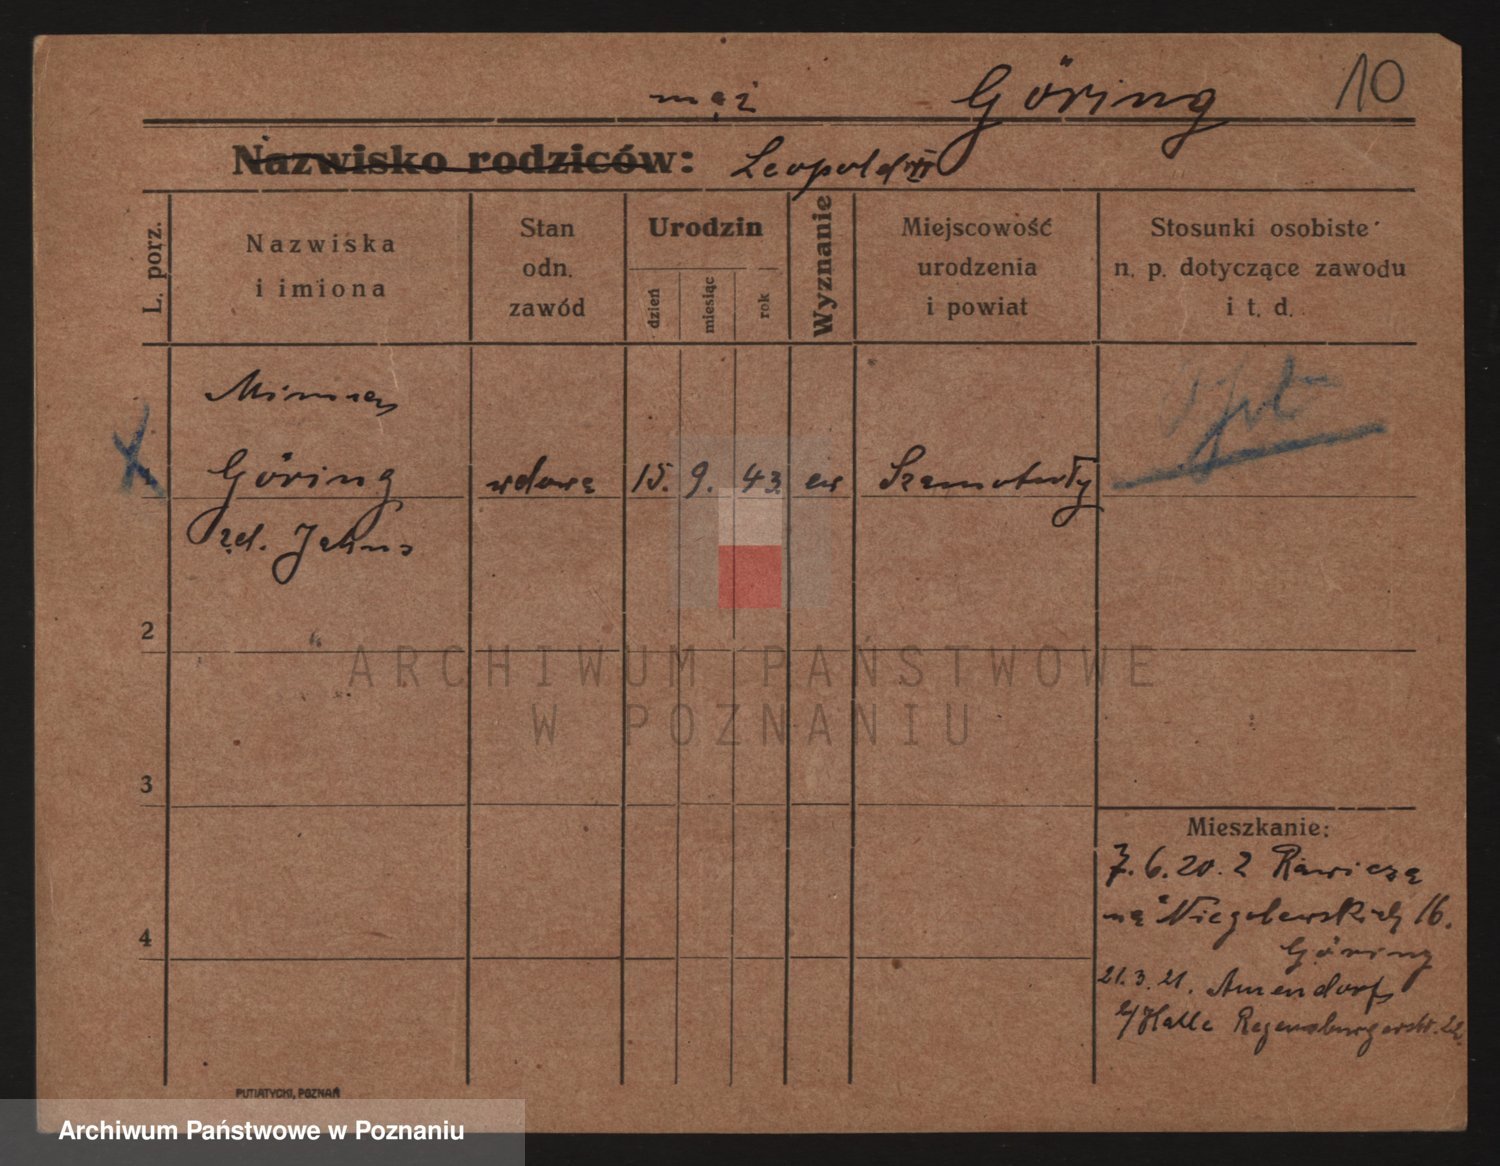 mąż Göring 10
Nazwisko rodziców: Leopold
L. porz.
Nazwiska
i imiona
Stan
odn.
zawód
Urodzin
dzień
miesiąc
rok
Wyznanie
Miejscowość
urodzenia
i powiat
Stosunki osobiste
n. p. dotyczące zawodu
i t. d.
Göring wdowa 15. 9. 43. ew Szamotuły
żd. Jahns
2
3
4
ARCHIWUM PAŃSTWOWE
W POZNANIU
Mieszkanie:
7. 6. 20. z Rawicza
na Niegolewskich 16.
Göring
21. 3. 21. Amendorf
b/Halle Regensburgerstr. 22.
PUTIATYCKI, POZNAŃ
Archiwum Państwowe w Poznaniu